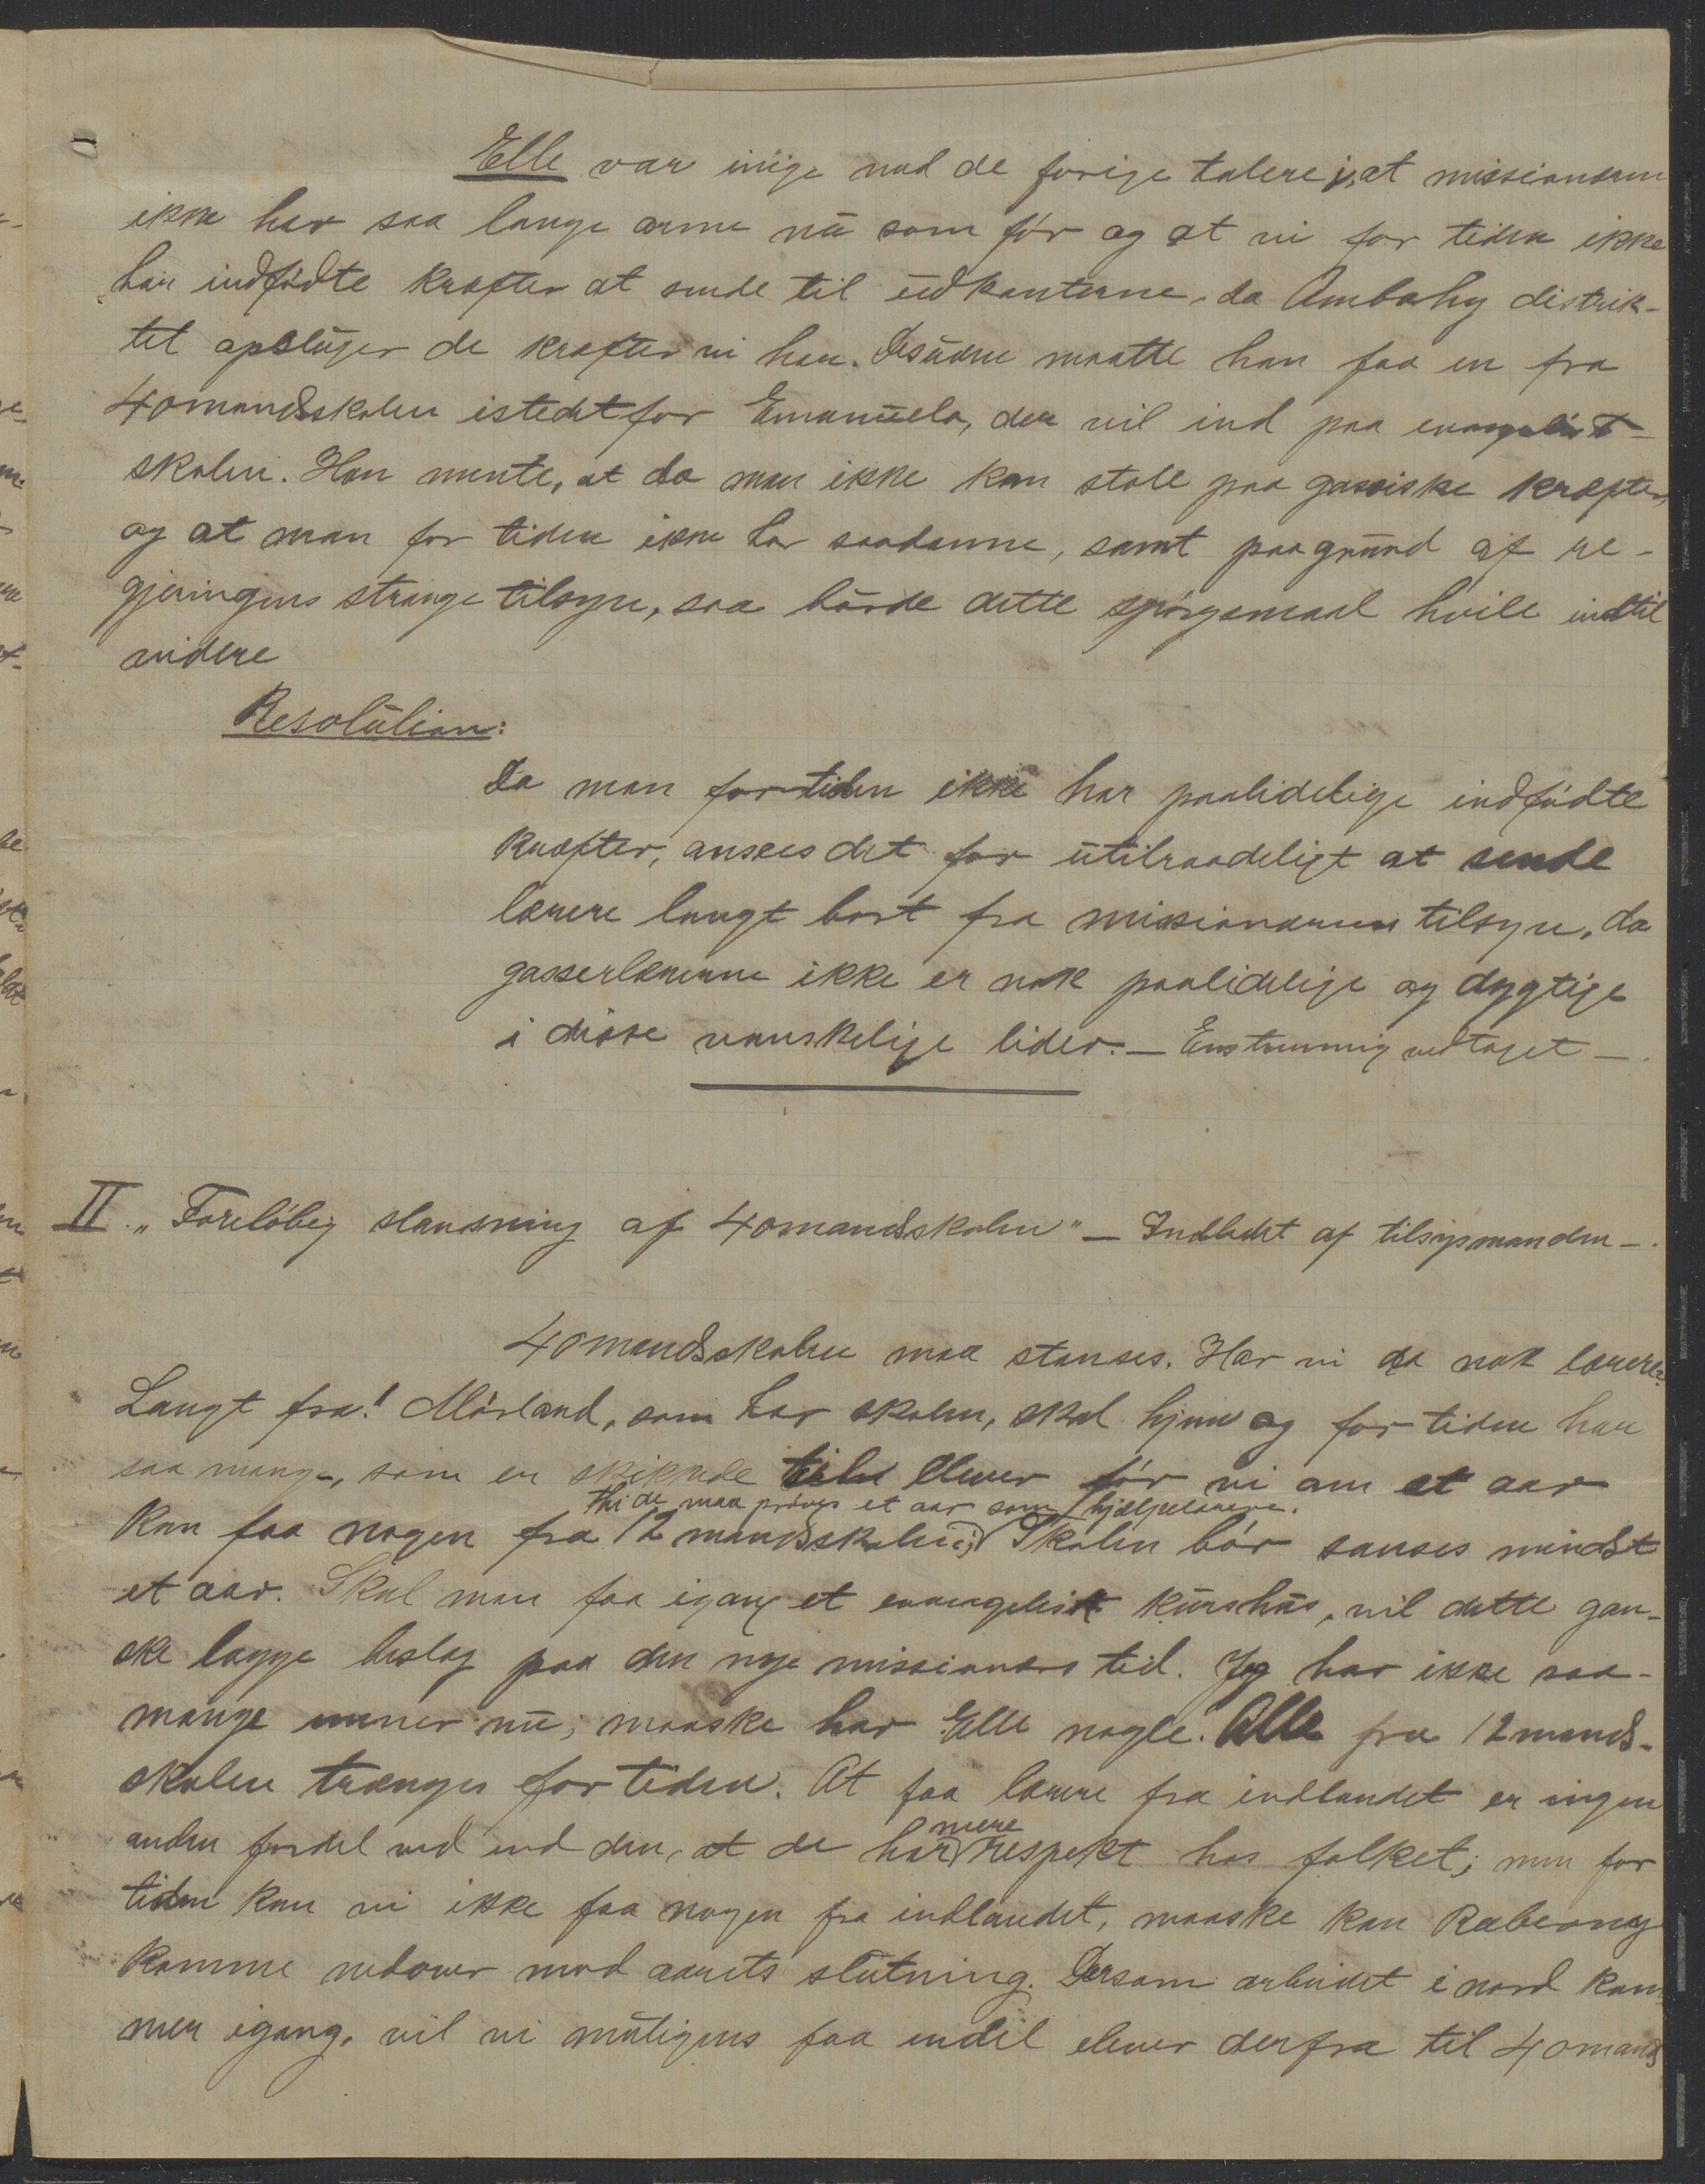 Elle var enige med de forige talere i, at missionæren
ikke har saa lange arme nu som før og at vi for tiden ikke
har indfødte kræfter at sende til udkanterne, da Ambahy distrik-
tet opsluger de kræfter vi har. Desuden maatte han faa en fra
40mandsskolen istedetfor Emanuela, der vil ind paa evangelist-
skolen. Han mente, at da man ikke kan stole paa gassiske kræfter,
og at man for tiden ikke har saadanne, samt paagrund af re-
gjeringens strænge tilsyn, saa burde dette spørgsmaal hvile indtil
videre
Resolution:
Da man fortiden ikke har paalidelige indfødte
kræfter, ansees det for utilraadeligt at sende
lærere langt bort fra missionærens tilsyn, da
gasserlærerne ikke er nok paalidelige og dygtige
i disse vanskelige tider. — Enstemmig vedtaget —.
II. „Foreløbig stansning af 40mandsskolen" — Indledet af tilsynsmanden —.
40mandsskolen maa stanses. Har vi da nok lærere?
Langt fra! Mørland, som har skolen, skal hjem og for tiden har
saa mange, som er skikkede til elever før vi om et aar
thi de maa prøves et aar som hjælpelærere.
kan faa nogen fra 12mandsskolen; Skolen bør sanses mindst
et aar. Skal man faa igang et evangelist kurshus, vil dette gan-
ske lægge beslag paa den nye missionærs tid. Jeg har ikke saa-
mange emner nu; maaske har Elle nogle. Alle fra 12mands-
skolen trænges for tiden. At faa lærere fra indlandet er ingen
mere
anden fordel ved end den, at de har respekt hos folket; men for
tiden kan vi ikke faa nogen fra indlandet, maaske kan Rabeony
komme nedover mod aarets slutning. Dersom arbeidet i nord kom
mer igang, vil vi muligens faa endel elever derfra til 40mands